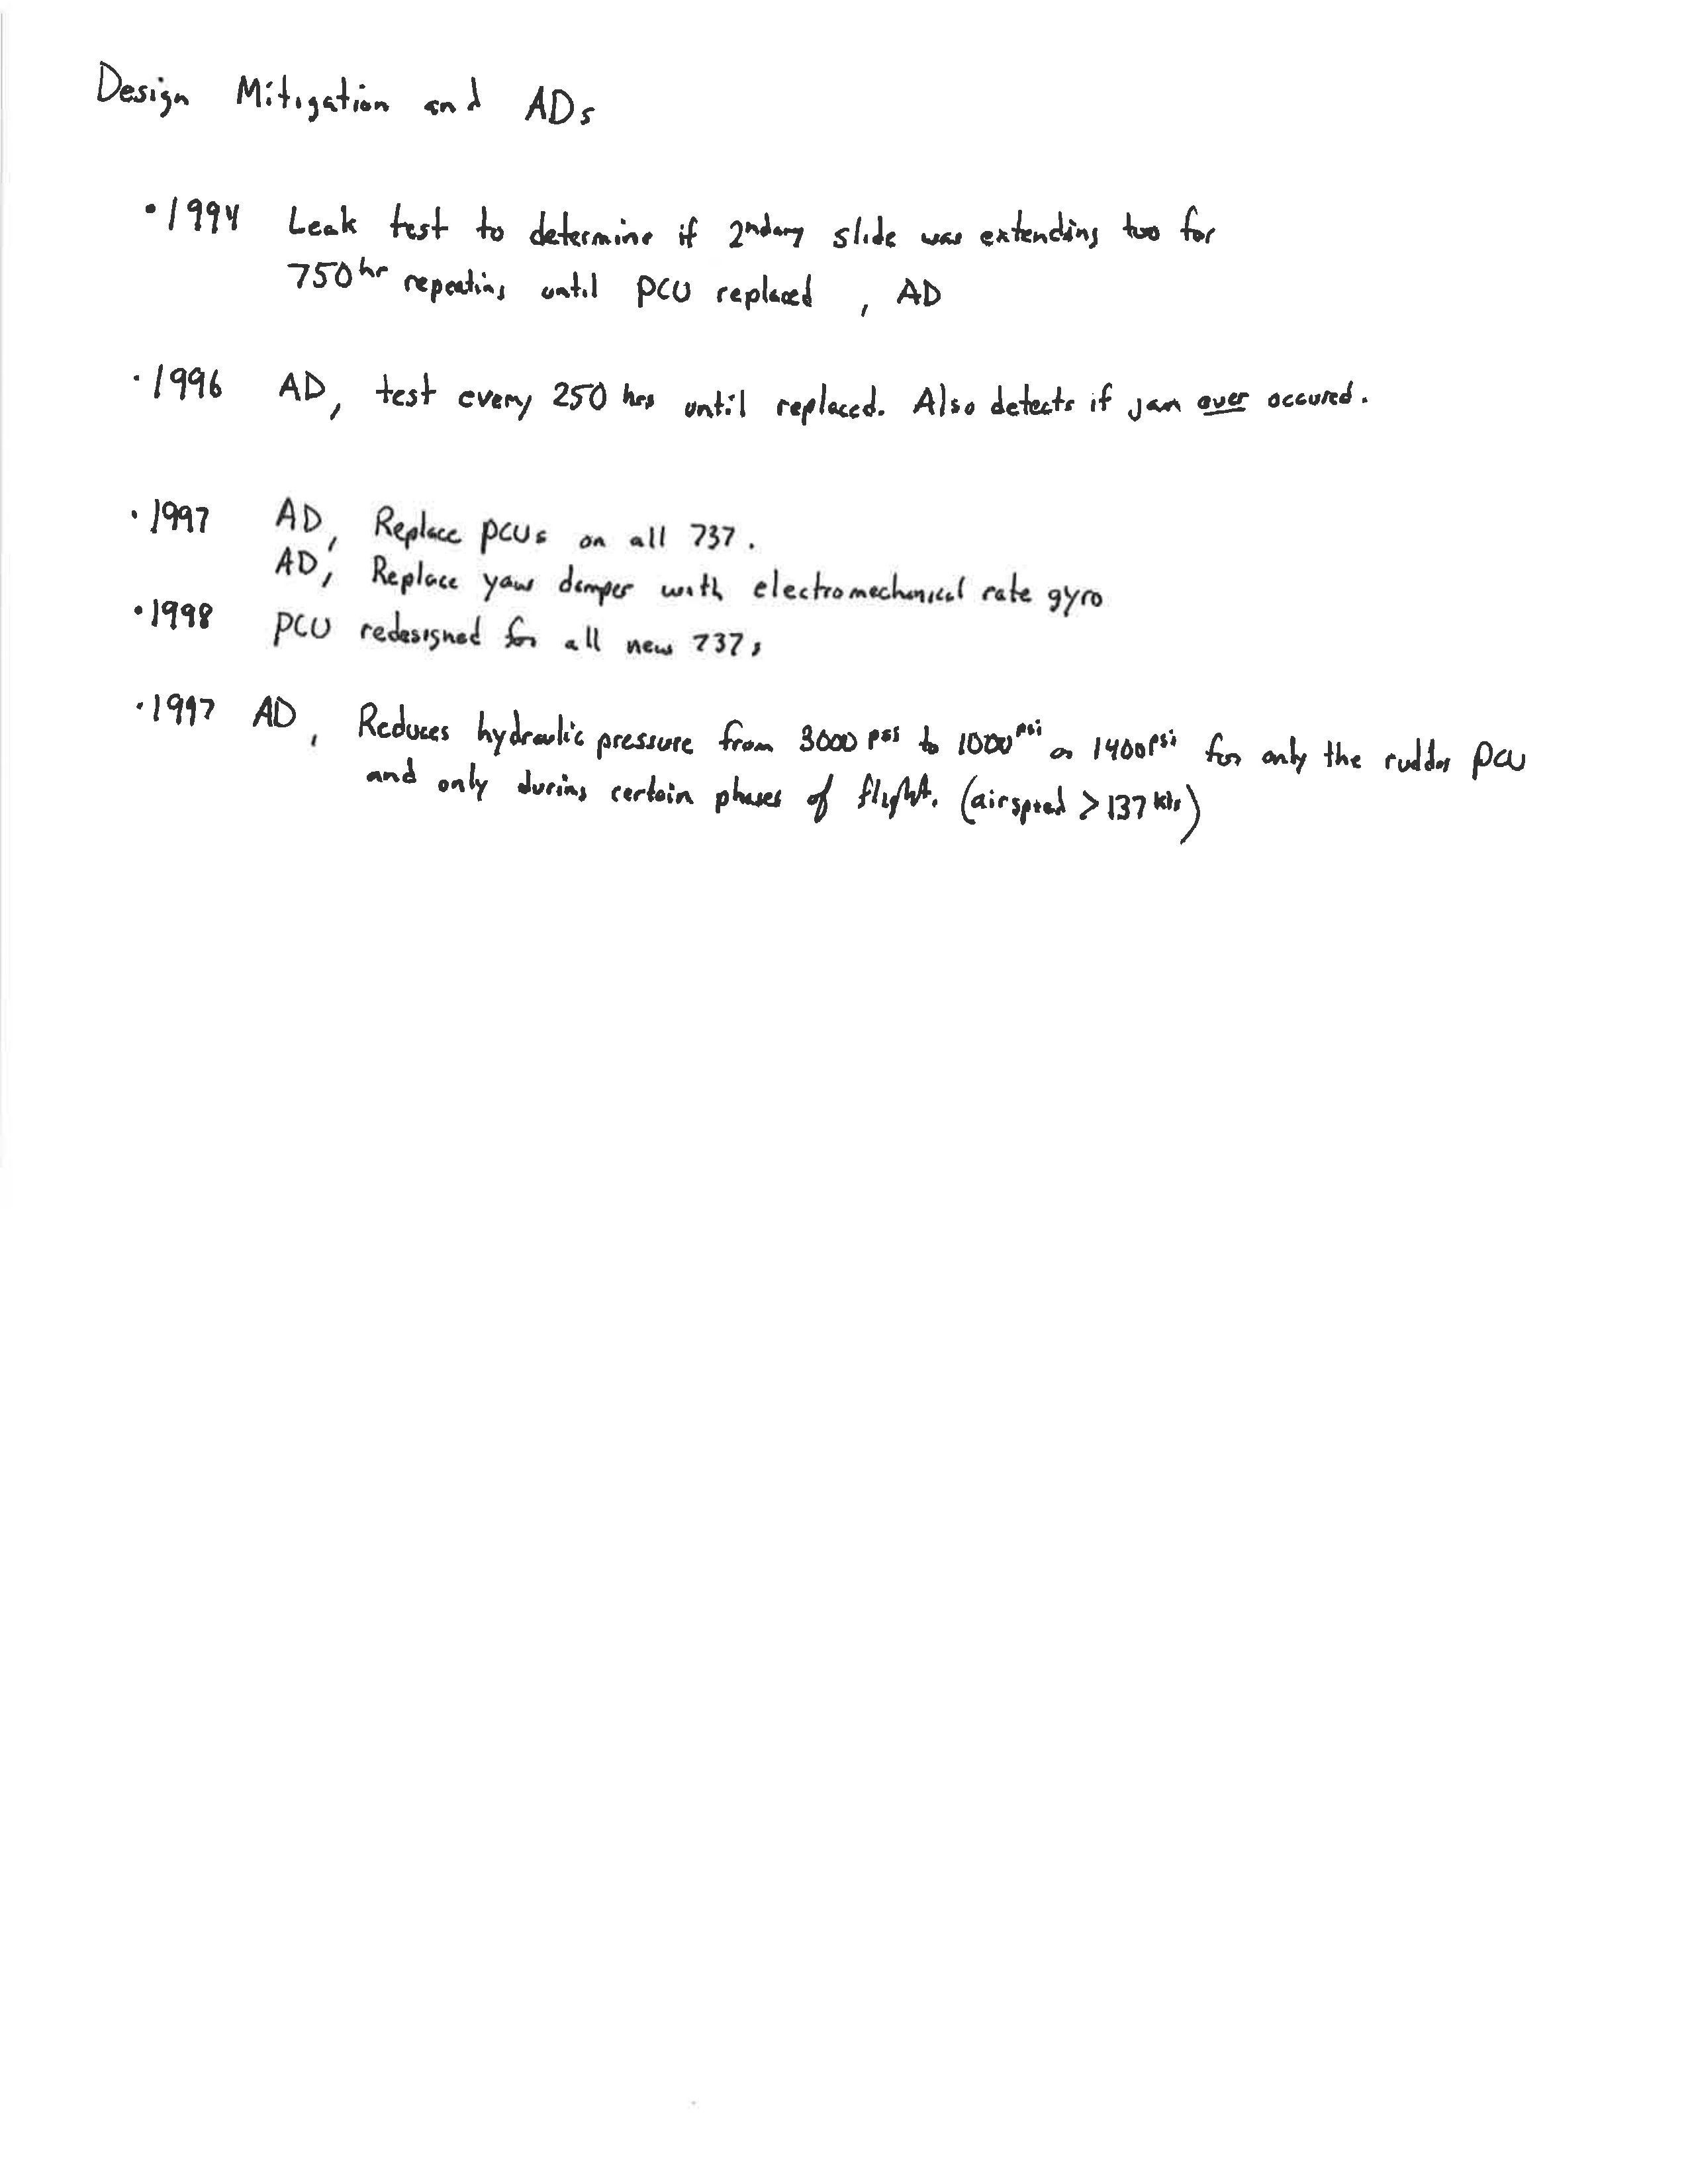 Design Mitigation and ADs
• 1994 Leak test to determine if 2ndary slide was extending too far
750hr repeating until PCU replaced , AD
• 1996 AD, test every 250 hrs until replaced. Also detects if jam ever occured.
• 1997 AD, Replace PCUs on all 737.
AD, Replace yaw damper with electromechanical rate gyro
• 1998 PCU redesigned for all new 737s
• 1997 AD, Reduces hydraulic pressure from 3000 psi to 1000psi or 1400psi for only the rudder PCU
and only during certain phases of flight. (airspeed > 137 kts)